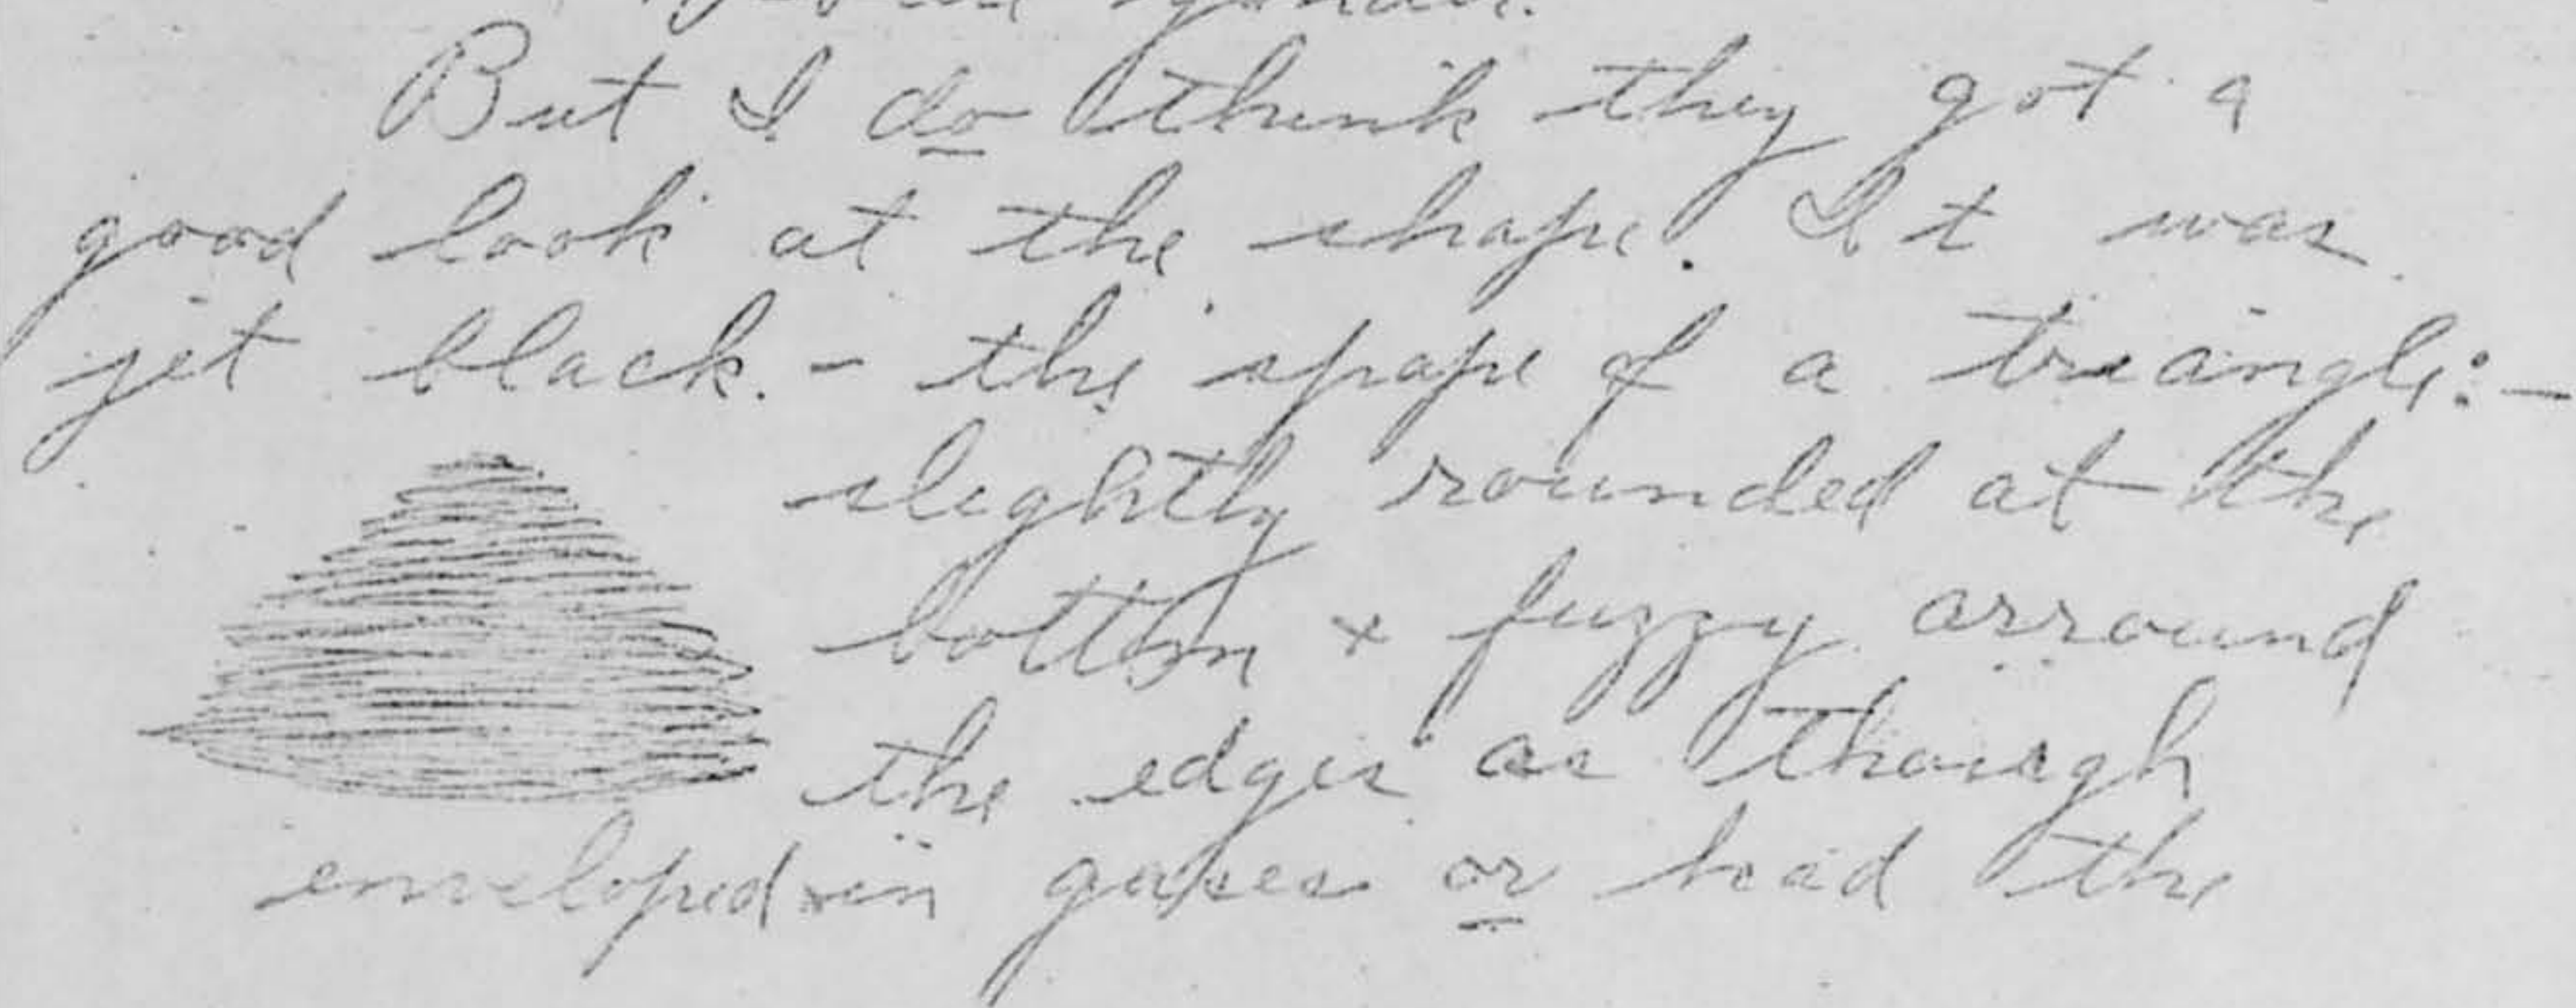 But I do think they got a
good look at the shape. It was
jet black. - the spape of a triangle: -
slightly rounded at the
bottom + fuzzy arround
the edges as though
enveloped in gases or had the